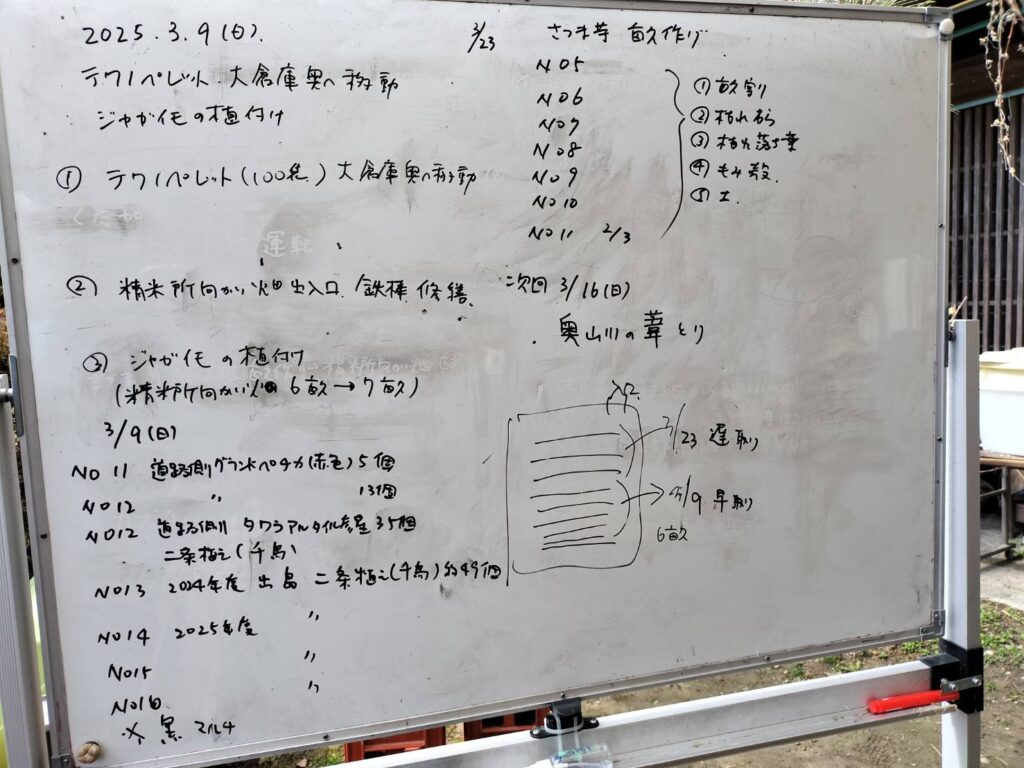 2025.3.9(日).
テクノペレット 大倉庫奥へ移動
ジャガイモの植付け
① テクノペレット(100袋) 大倉庫奥へ移動
運転
② 精米所向かい畑出入口 鉄棒 修繕
③ ジャガイモの植付け
(精米所向かい畑 6畝→7畝)
3/9(日)
NO 11 道路側グランドペチカ(赤色)5個
NO12 〃 13個
NO12 道路側 タワラ 35個
二条植え(千鳥)
NO13 2024年度 出島 二条植え(千鳥)約49個
NO14 2025年度 〃
NO15 〃
NO16 〃
※ 黒マルチ
3/23 さつま芋 畝作り
NO5
NO6
NO7
NO8
NO9
NO10
NO11 2/3
① 畝割り
②
③ 枯れ落ち葉
④ もみ殻
⑤ 土.
次回 3/16(日)
奥山川の葦とり
入口
3/23 遅取り
3/9 早取り
6畝